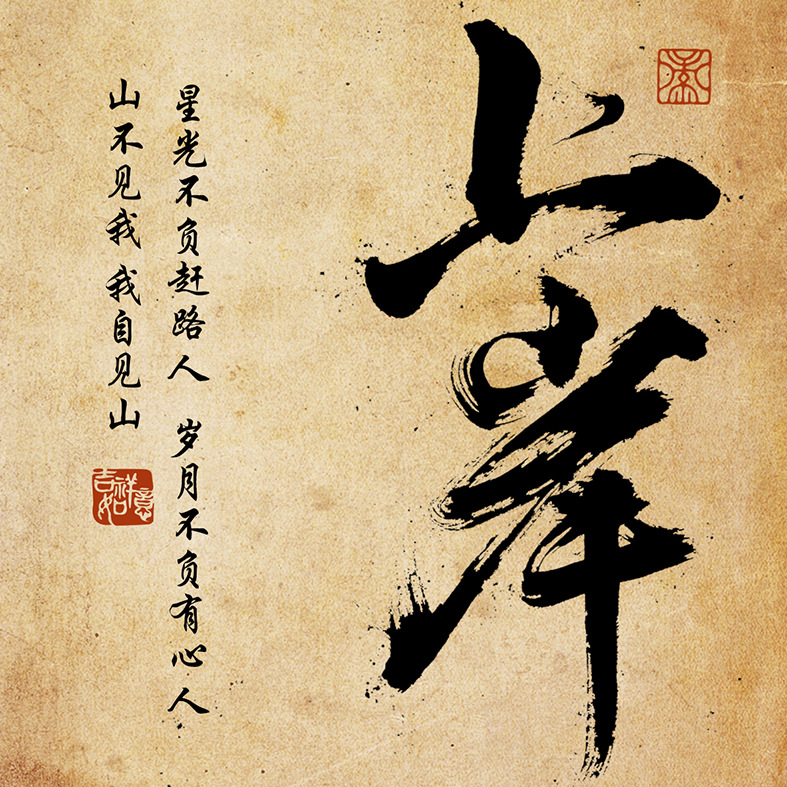 上岸
星光不负赶路人 岁月不负有心人
山不见我 我自见山
吉祥如意